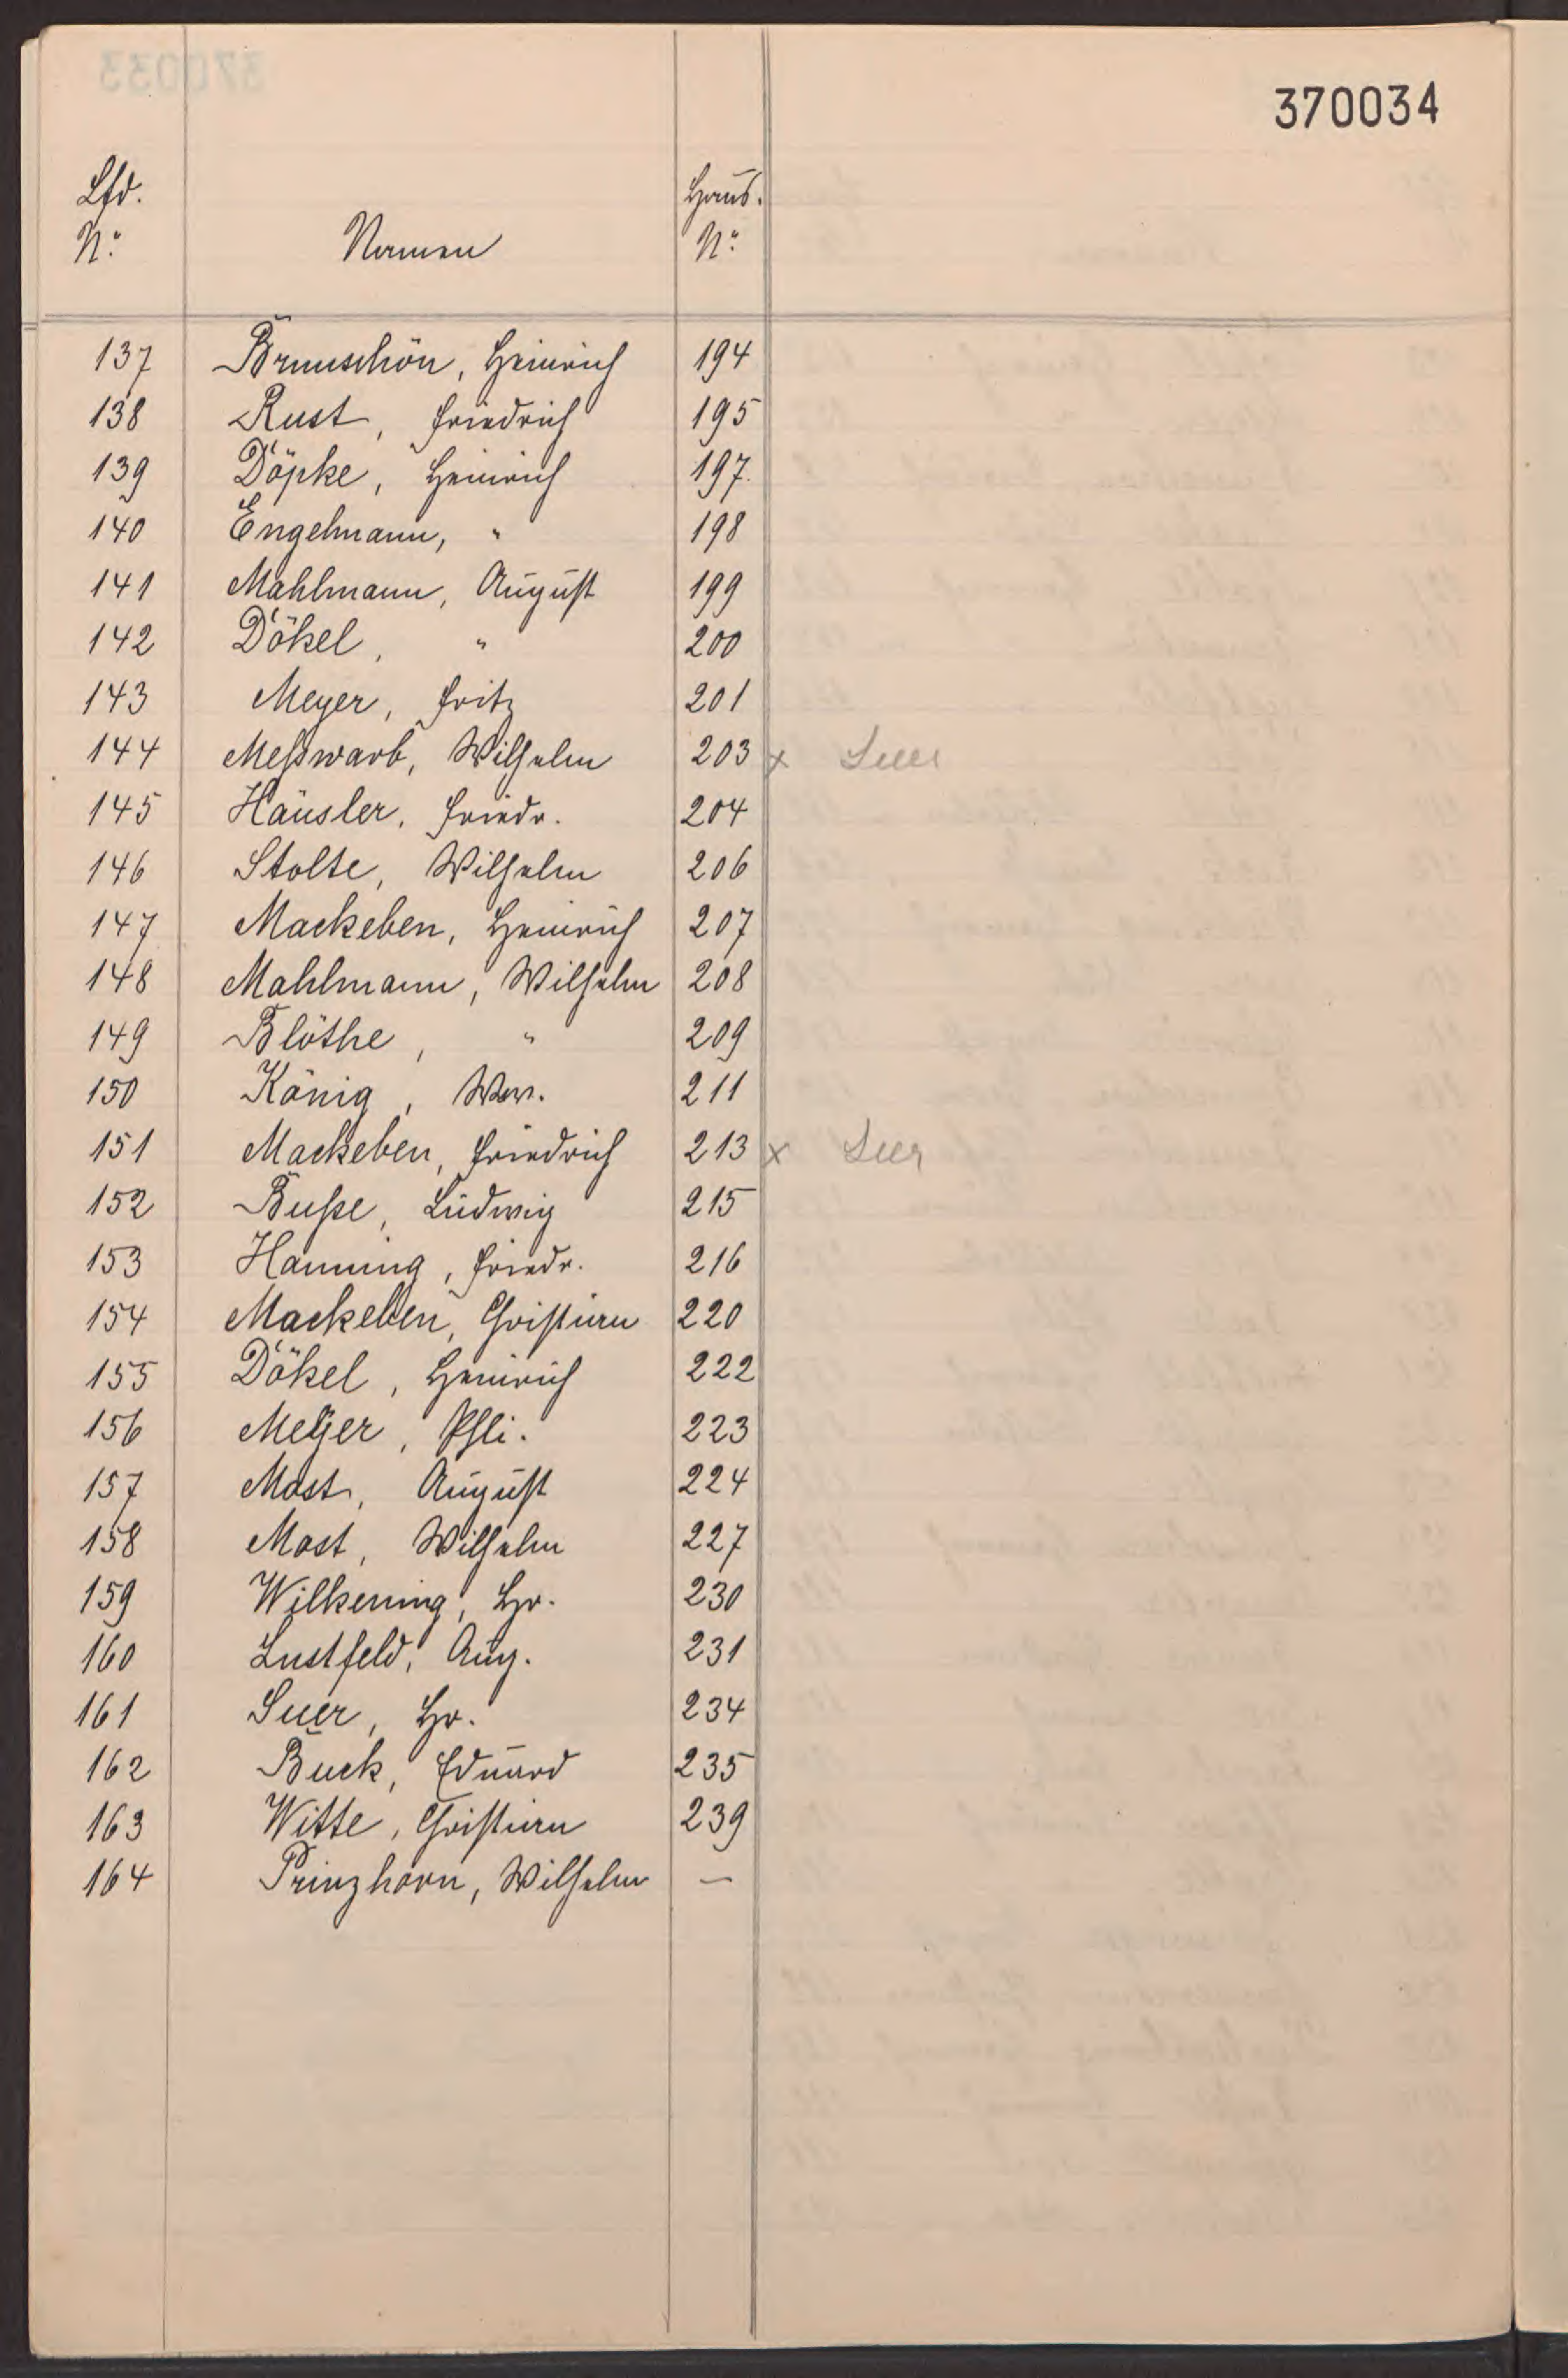 370034
Lfd. Haus.
No. Namen No.
137 Brunschön, Heinrich 194
138 Rust, Friedrich 195
139 Döpke, Heinrich 197
140 Engelmann, " 198
141 Mahlmann, August 199
142 Dökel, " 200
143 Meyer, Fritz 201
144 Meßwarb, Wilhelm 203 x
145 Häusler, Friedr. 204
146 Stolte, Wilhelm 206
147 Mackeben, Heinrich 207
148 Mahlmann, Wilhelm 208
149 Blöthe, " 209
150 König, Ww. 211
151 Mackeben, Friedrich 213 x
152 Buße, Ludwig 215
153 Hanning, Friedr. 216
154 Mackeben, Christian 220
155 Dökel, Heinrich 222
156 Meyer, Phli. 223
157 Most, August 224
158 Most, Wilhelm 227
159 Wilkening, Hr. 230
160 Lustfeld, Aug. 231
161 Suer, Hr. 234
162 Buck, Eduard 235
163 Witte, Christian 239
164 Prinzhorn, Wilhelm —